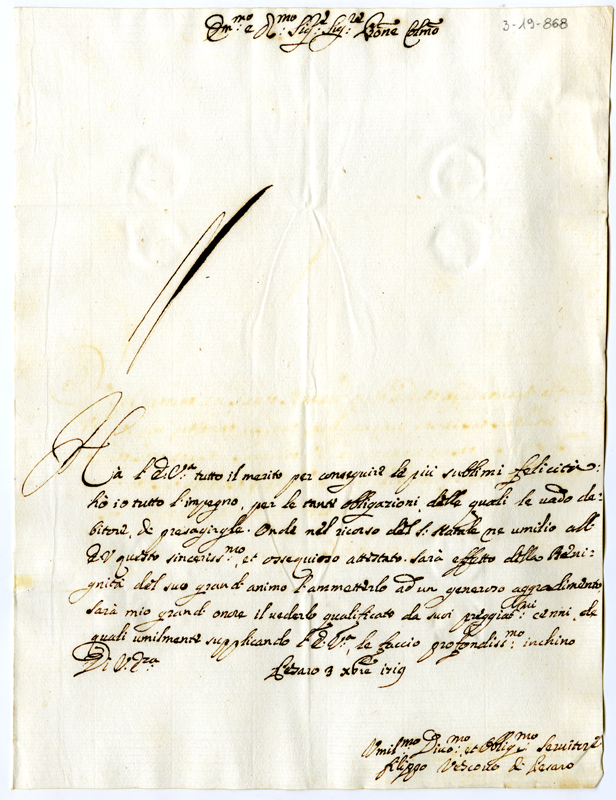 3-19-868
Em.mo e R.mo Sig.re Sig.re P'rone Col.mo
Hà l'E.V.ra tutto il merito per conseguire le più sublimi felicità:
hò io tutto l'impegno, per le tante obligazioni, delle quali le vado de-
bitore, di presagirgle. Onde nel ricorso del S. Natale ne umilio all'
EV questo sinceriss.mo, et ossequioso attestato. Sarà effetto della Beni-
gnità del suo grand'animo l'ammetterlo ad un generoso aggradimento,
sarà mio grand'onore il vederlo qualificato da suoi preggiat.mi cenni, de
quali umilmente supplicando l'E.V.ra le faccio profondiss.mo inchino
Di V.ra
Pesaro 3 Xbre 1719
Umil.mo Divo.mo et Oblig.mo Servitore
Filippo Vescovo di Pesaro